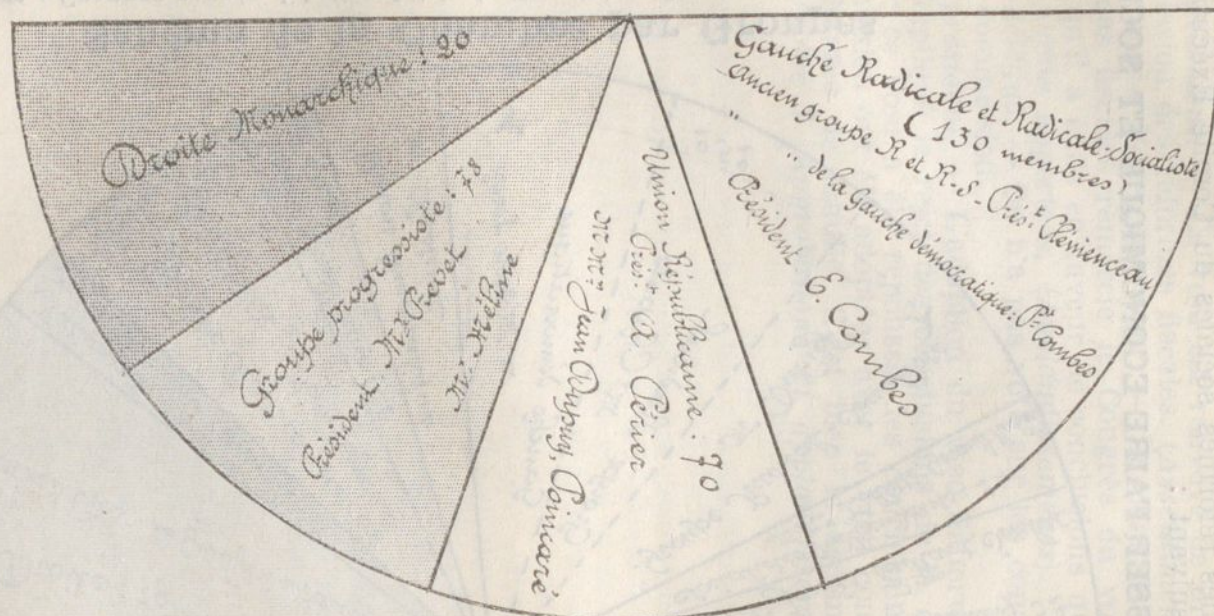 Droite Monarchique : 20
Groupe progressiste : 78
Président Mr Prevet
Mr Méline
Union Républicaine : 70
Prés.t A Périer
M Mrs Jean Dupuy, Poincaré
Gauche Radicale et Radicale-Socialiste
( 130 membres )
ancien groupe R et R.-S - Prés.t Clémenceau
" " de la Gauche démocratique : P.t Combes
" Président E. Combes